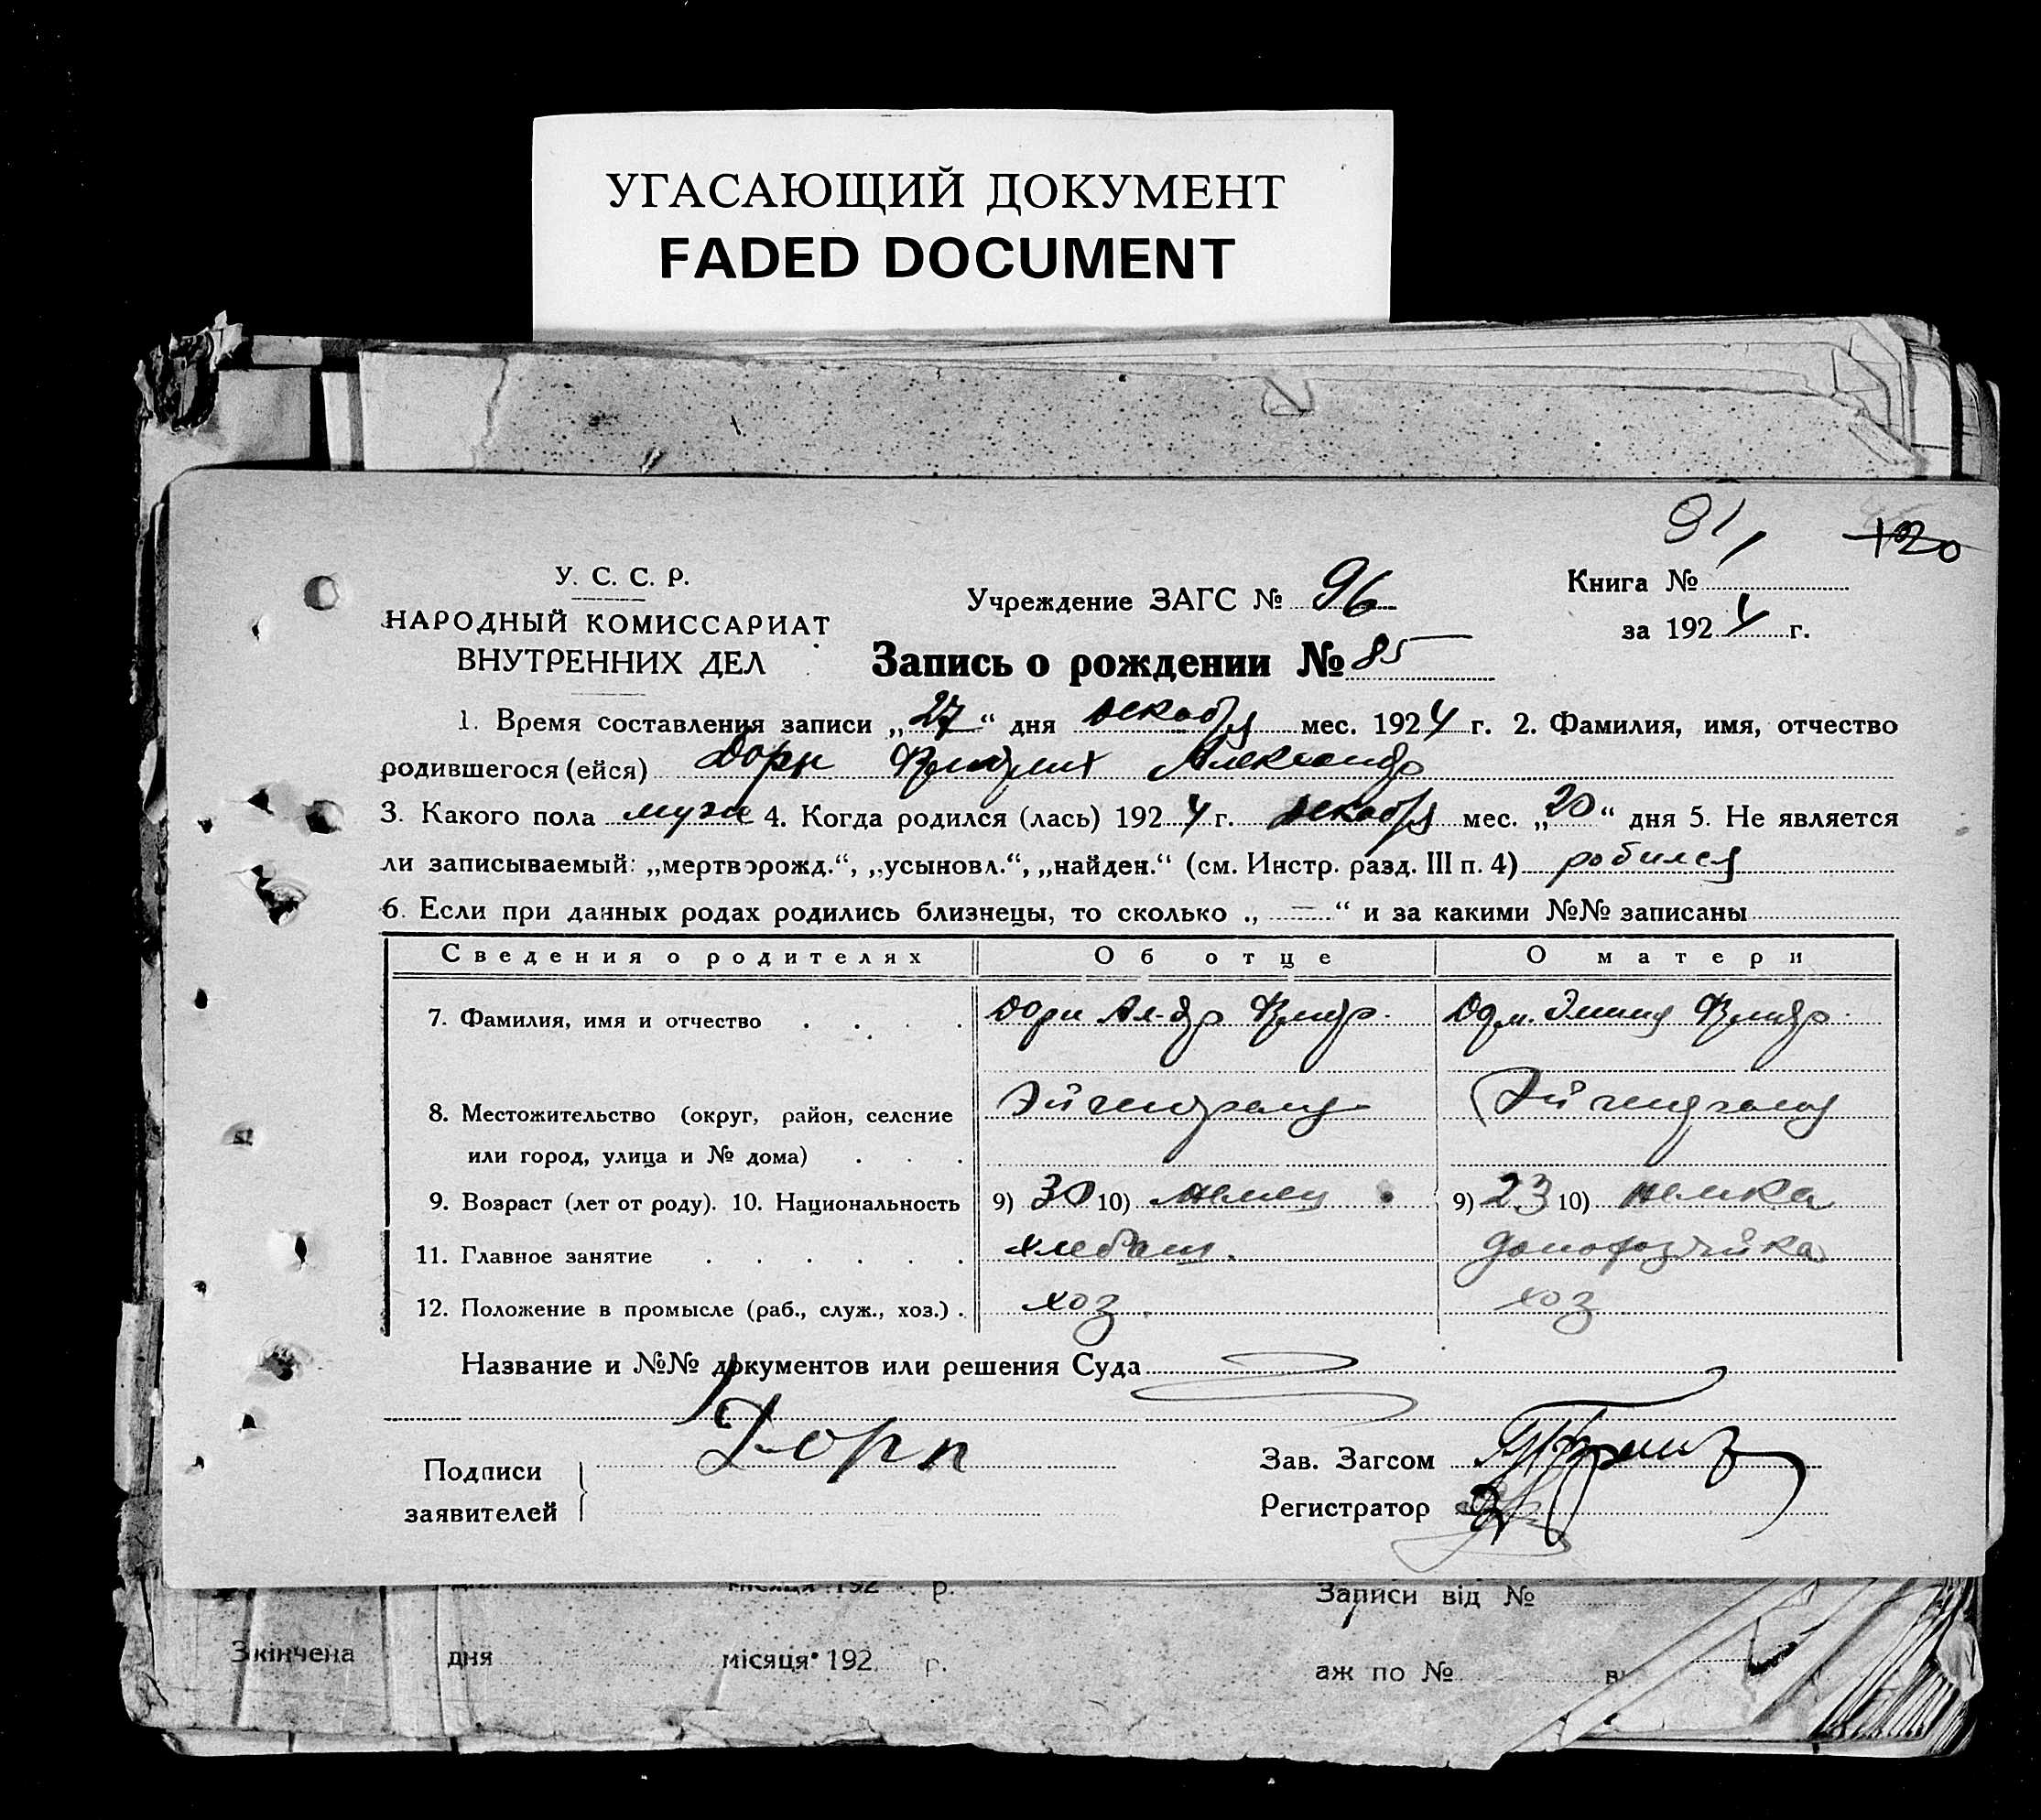 УГАСАЮЩИЙ ДОКУМЕНТ
FADED DOCUMENT
91
120
У. С. С. Р.
НАРОДНЫЙ КОМИССАРИАТ
ВНУТРЕННИХ ДЕЛ
Учреждение ЗАГС № 96
Книга №
за 1924 г.
Запись о рождении № 85
1. Время составления записи „27“ дня декабря мес. 1924 г. 2. Фамилия, имя, отчество
родившегося (ейся) Дорн Фридрих Александр
3. Какого пола муж 4. Когда родился (лась) 1924 г. декабря мес. „20“ дня 5. Не является
ли записываемый: „мертворожд.“, „усыновл.“, „найден.“ (см. Инстр. разд. III п. 4) робился
6. Если при данных родах родились близнецы, то сколько „—“ и за какими №№ записаны
Сведения о родителях Об отце О матери
7. Фамилия, имя и отчество . . . . Дорн Ал-др Фридр. Фридр.
8. Местожительство (округ, район, селение
или город, улица и № дома) . . .
9. Возраст (лет от роду). 10. Национальность 9) 30 10) немец 9) 23 10) немка
11. Главное занятие . . . . . . хлебоп. домохозяйка
12. Положение в промысле (раб., служ., хоз.) . хоз. хоз
Название и №№ документов или решения Суда
Подписи
заявителей
Дорн
Зав. Загсом
Регистратор
місяця 192 р.
Записи від №
Закінчена дня місяця 192 р.
аж по №